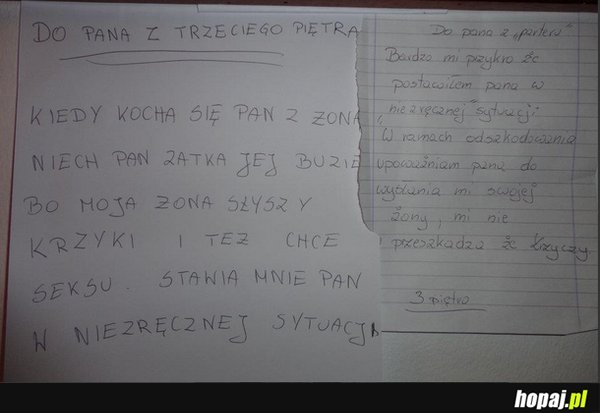 DO PANA Z TRZECIEGO PIĘTRA
KIEDY KOCHA SIĘ PAN Z ZONA
NIECH PAN ZATKA JEJ BUZIE
BO MOJA ZONA SŁYSZY
KRZYKI I TEZ CHCE
SEKSU. STAWIA MNIE PAN
W NIEZRĘCZNEJ SYTUACJI
Do pana z "parteru"
Bardzo mi przykro że
postawiłem pana w
niezręcznej "sytuacji".
W ramach odszkodowania
upoważniam pana do
wysłania mi swojej
żony, mi nie
przeszkadza że krzyczy
3 piętro
hopaj.pl